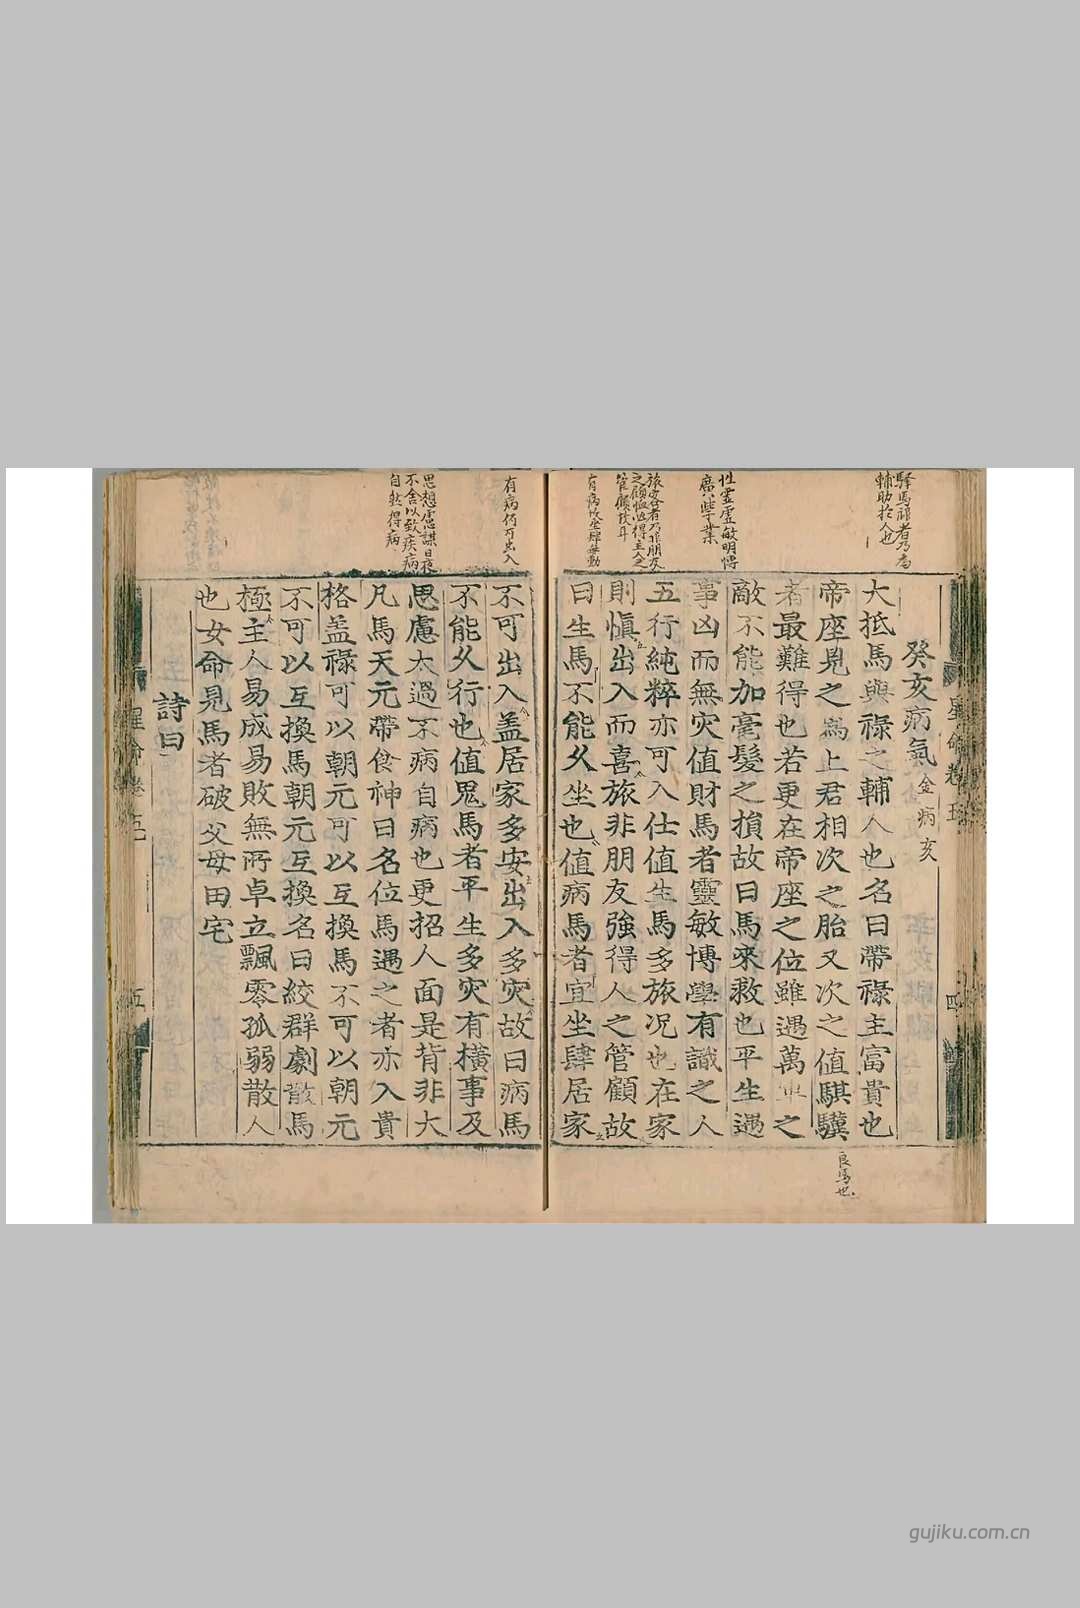 驛馬祿者乃為
輔助於人也
性靈虛敏明博
廣學業
旅客者乃非朋友
之顧恤必得主人之
管顧故耳
有病故坐肆無動
癸亥病氣 金病亥
大抵馬與祿之輔人也名曰帶祿主富貴也
帝座見之為上君相次之胎又次之值騏驥
者最難得也若更在帝座之位雖遇萬車之
敵不能加毫髮之損故曰馬來救也平生遇
事凶而無灾值財馬者靈敏博學有識之人
五行純粹亦可入仕值生馬多旅况也在家
則慎出入而喜旅非朋友強得人之管顧故
曰生馬不能久坐也值病馬者宜坐肆居家
良馬也
星命卷五
四
有病仍不出入
思想慮謀日夜
不舍以致疾病
自然得病
不可出入盖居家多安出入多灾故曰病馬
不能久行也值鬼馬者平生多灾有橫事及
思慮太過不病自病也更招人面是背非大
凡馬天元帶食神曰名位馬遇之者亦入貴
格盖祿可以朝元可以互換馬不可以朝元
不可以互換馬朝元互換名曰絞群劇散馬
極主人易成易敗無所卓立飄零孤弱散人
也女命見馬者破父母田宅
詩曰
星命卷五
五
gujiku.com.cn